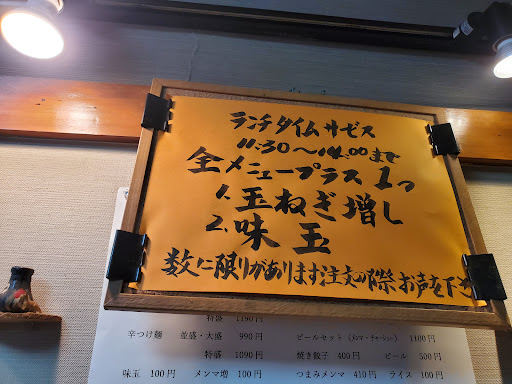 ランチタイムサービス
11:30〜14:00まで
全メニュープラス1つ
1.玉ねぎ増し
2.味玉
数に限りがあります注文の際お声を下さ
特盛 1190円
辛つけ麺 並盛・大盛 990円 ビールセット(メンマ・チャーシュー) 1100円
特盛 1090円 焼き餃子 400円 ビール 500円
味玉 100円 メンマ増 100円 つまみメンマ 410円 ライス 100円